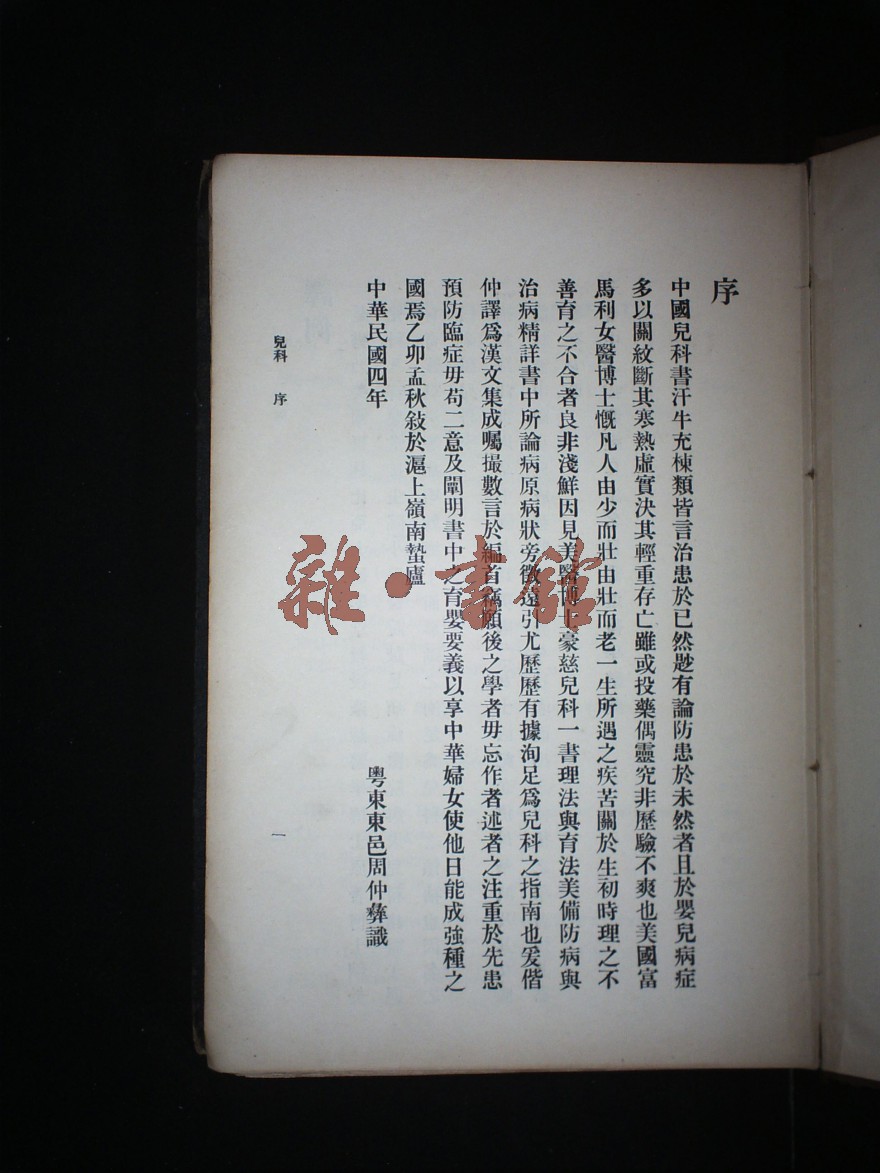 序
中國兒科書汗牛充棟類皆言治患於已然尟有論防患於未然者且於嬰兒病症
多以關紋斷其寒熱虛實決其輕重存亡雖或投藥偶靈究非歷驗不爽也美國富
馬利女醫博士慨凡人由少而壯由壯而老一生所遇之疾苦關於生初時理之不
善育之不合者良非淺鮮因見美醫博士豪慈兒科一書理法與育法美備防病與
治病精詳書中所論病原病狀旁徵遠引尤歷歷有據洵足爲兒科之指南也爰偕
仲譯爲漢文集成囑撮數言於編首竊願後之學者毋忘作者述者之注重於先患
預防臨症毋苟二意及闡明書中之育嬰要義以享中華婦女使他日能成強種之
國焉乙卯孟秋敍於滬上嶺南蟄廬
中華民國四年
粵東東邑周仲彝識
兒科 序
一
雜·書館